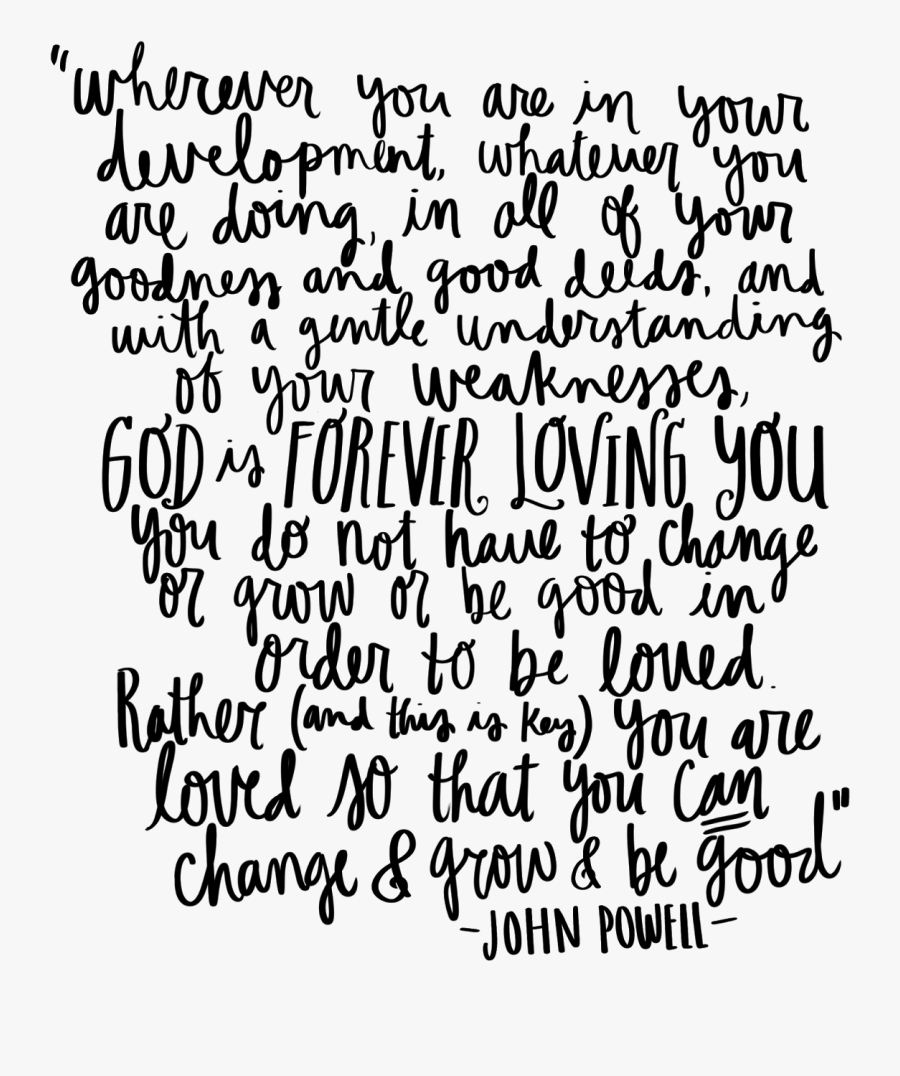 "wherever you are in your
development, whatever you
are doing, in all of your
goodness and good deeds, and
with a gentle understanding
of your weaknesses,
GOD is FOREVER LOVING YOU
you do not have to change
or grow or be good in
order to be loved.
Rather (and this is key) you are
loved so that you can
change & grow & be good"
-JOHN POWELL-